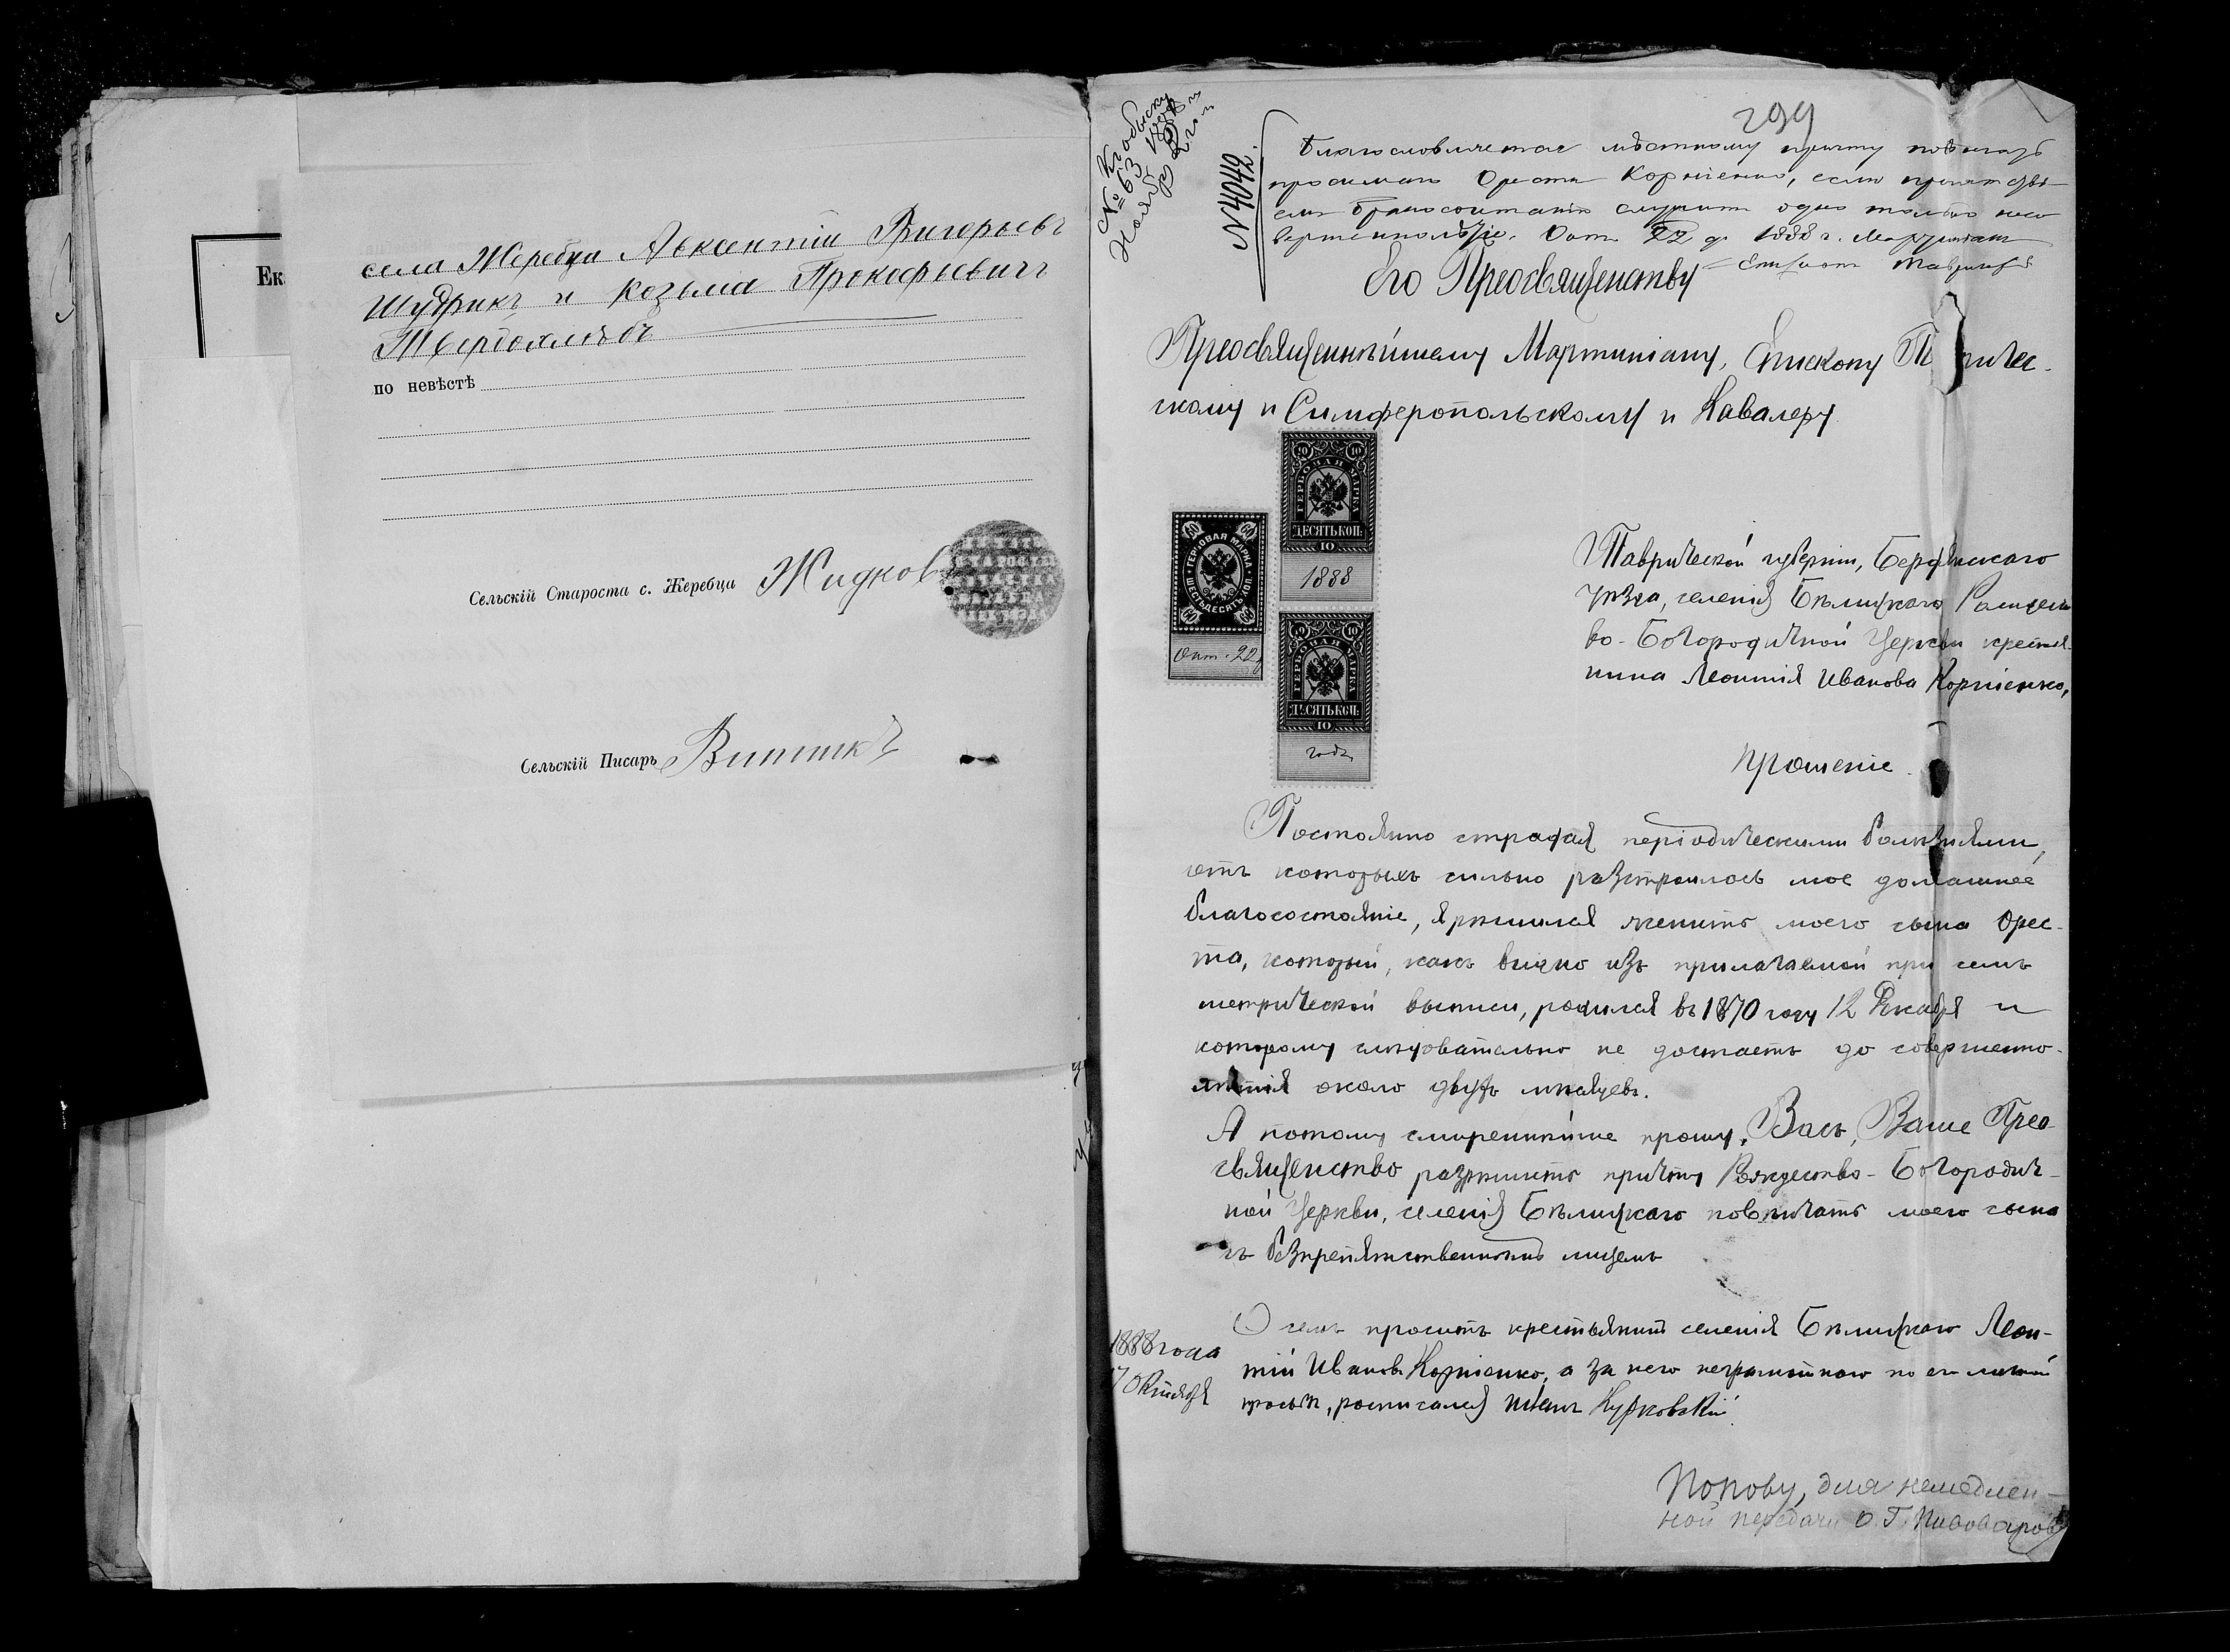 Ек
села Жеребца Авксентій Григорьевъ
Шудрикъ и Козьма Прокофьевичъ
Твердохлѣбъ
по невѣстѣ
Сельскій Староста с. Жеребца Жидковъ
Сельскій Писарь Витикъ
299
Къ обыску
№ 63 1888 г.
Ноября 2 го
№ 4042.
Благословляется мѣстному причту повѣнчать
просимаго Ореста Корніенко, если препятстві-
емъ бракосочетанію служитъ одно только несо
вершеннолѣтіе. Окт. 22 д. 1888 г. Мартиніанъ
Епископъ Таврическій
Его Преосвященству
Преосвященнѣйшему Мартиніану, Епископу Т ричес-
кому и Симферопольскому и Кавалеру
ГЕРБОВАЯ МАРКА
ДЕСЯТЬ КОП:
10
1888
ГЕРБОВАЯ МАРКА
ШЕСТЬДЕСЯТЪ КОП.
60
Окт. 22 д
ГЕРБОВАЯ МАРКА
ДЕСЯТЬ КОП:
10
года
Таврической губерніи, Бердянскаго
уѣзда, селенія Бѣлицкаго Рождест
во-Богородичной Церкви крестья-
нина Леонтія Иванова Корніенко,
Прошеніе.
Постоянно страдая періодическими болѣзнями,
отъ которыхъ сильно разстроилось мое домашнее
благосостояніе, я рѣшился женить моего сына Орес-
та, который, какъ видно изъ прилагаемой при семъ
метрической выписи, родился въ 1870 году 12 Декабря и
которому слѣдовательно не достаетъ до совершенно-
лѣтія около двухъ мѣсяцевъ.
А потому смиреннѣйше прошу, Васъ, Ваше Прео-
священство разрѣшить причту Рождество-Богородич-
ной Церкви, селенія Бѣлицкаго повѣнчать моего сына
съ безпрепятственнымъ лицемъ
О семъ проситъ крестьянинъ селенія Бѣлицкаго Леон-
тій Ивановъ Корніенко, а за него неграмотнаго по его личной
просьбѣ, росписался
1888 года
7 Октября
Попову, для немедлен-
ной передачи О. Г. Пивоварову